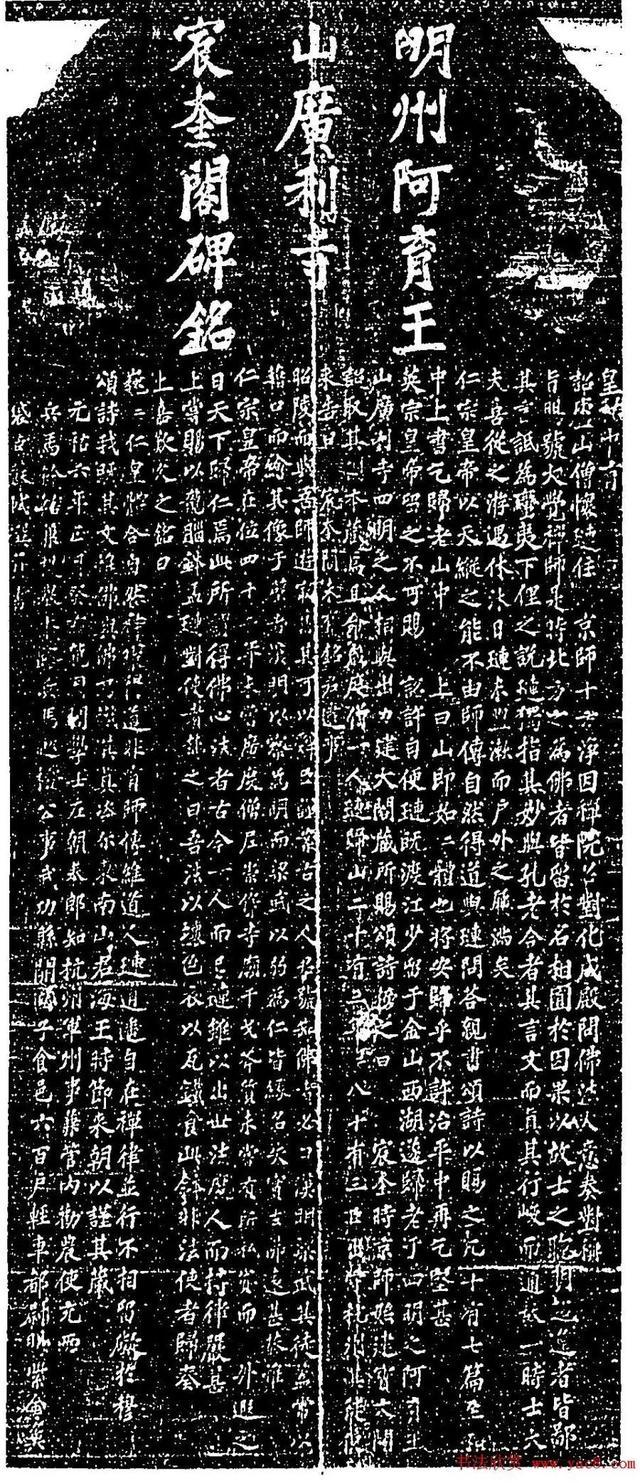 明州阿育王
山廣利寺
宸奎閣碑銘
皇祐中有
詔廬山僧懷璉住 京師十方淨因禪院召對化成殿問佛法大意奏對稱
旨賜號大覺禪師是時北方之為佛者皆留於名相囿於因果以故士之聰明超 者皆鄙
其言詆為蠻夷下俚之說璉獨指其妙與孔老合者其言文而真其行峻而通故一時士大
夫喜從之游遇休沐日璉未盥漱而戶外之屨滿矣
仁宗皇帝以天縱之能不由師傅自然得道與璉問答親書頌詩以賜之凡十有七篇至和
中上書乞歸老山中 上曰山即如如體也將安歸乎不許治平中再乞堅甚
英宗皇帝留之不可賜 詔許自便璉既渡江少留于金山西湖遂歸老于四明之阿育王
山廣利寺四明之人相與出力建大閣藏所賜頌詩榜之曰 宸奎時京師始建寶文閣
詔取其副本藏焉且命歲度僧一人璉歸山二十有三年年八十有三臣出守杭州其徒使
來告曰 宸奎閣未有銘君逮事
昭陵而與吾師遊最舊其可以辭臣謹案古之人君號知佛者必曰漢明梁武其徒蓋常以
藉口而繪其像于壁者漢明以察為明而梁武以弱為仁皆緣名失實去佛遠甚恭惟
仁宗皇帝在位四十二年未嘗廣度僧尼崇侈寺廟干戈斧質未嘗有所私貸而 升遐之
日天下歸仁焉此所謂得佛心法者古今一人而已璉雖以出世法度人而持律嚴甚
上嘗賜以龍腦鉢盂璉對使者焚之曰吾法以壞色衣以瓦鐵食此鉢非法使者歸奏
上嘉歎久之銘曰
巍巍仁皇體合自然神曜得道非有師傳維道人璉逍遙自在禪律並行不相留礙於穆
頌詩我既其文惟佛與佛乃識其真咨爾東南山君海王時節來朝以謹其藏
元祐六年正月 日龍圖閣學士左朝奉郎知杭州軍州事兼管內勸農使充兩
兵馬鈐轄 兵馬巡檢公事武功縣開國子食邑六百戶輕車都尉賜紫金魚
袋臣
书法欣赏 www.yac8.com